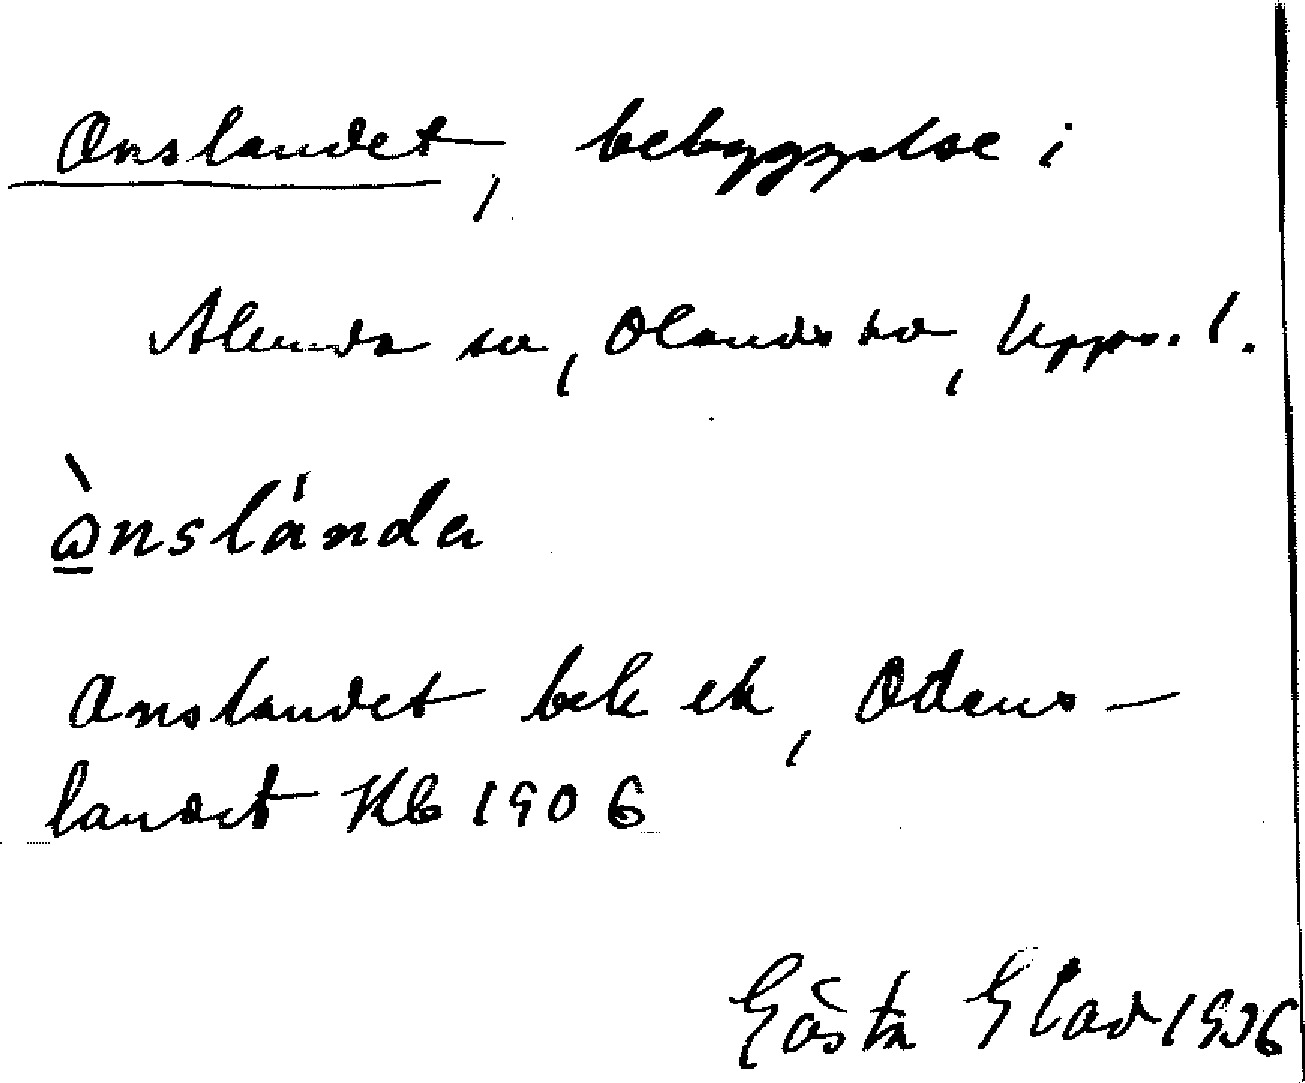 Onslandet, bebyggelse i
Alunda sn, Olands hd, Upps. l.
ò̲nslánda
Onslandet bek ek, Odens-
landet Kb 1906
Gösta Glad 1936